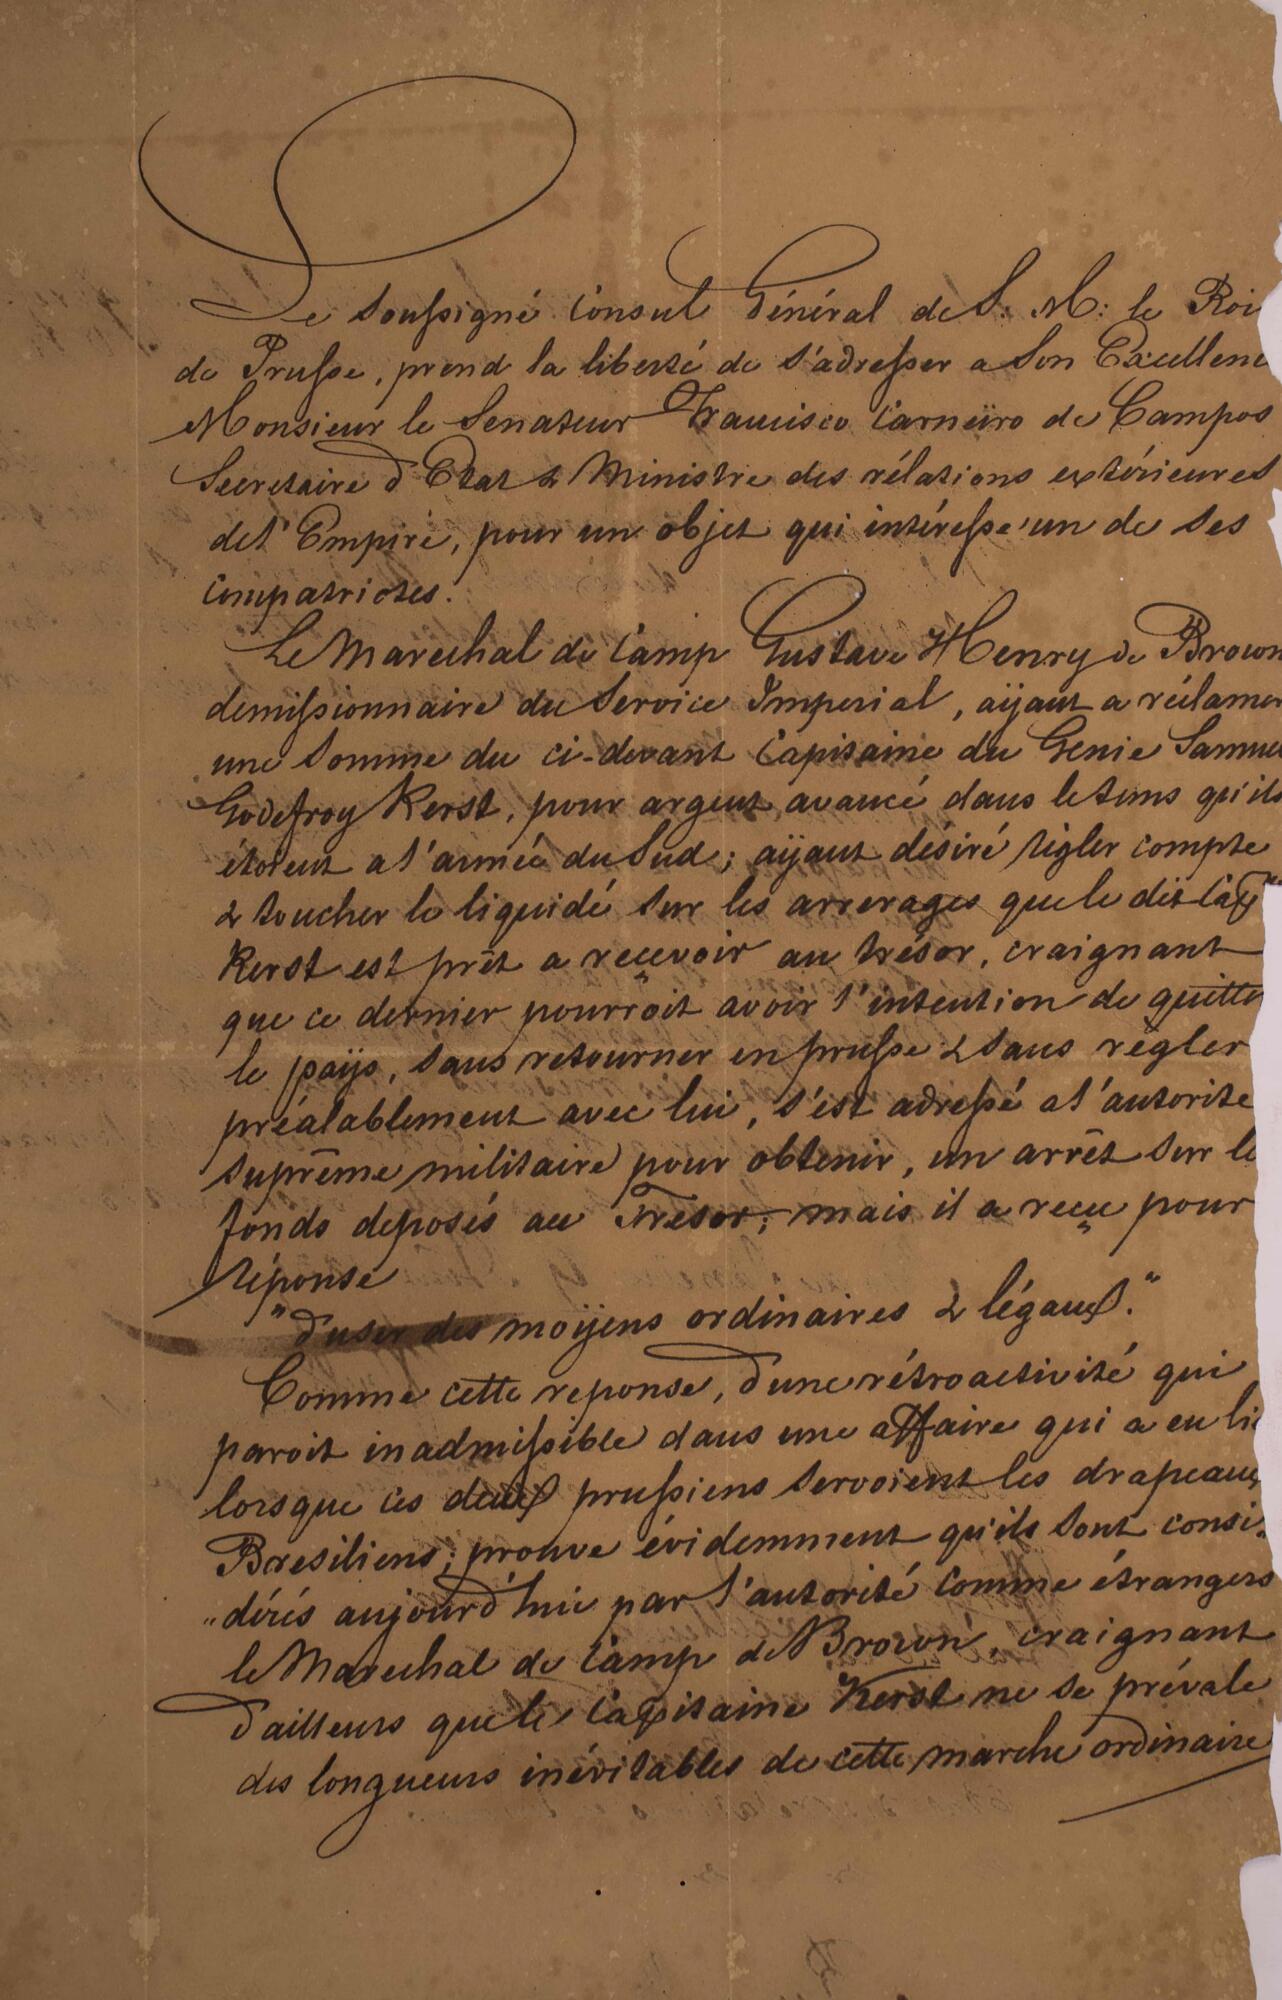 Le Soussigné Consul Général de S: M: le Roi
de Prusse, prend la liberté de s'adresser a Son Excellen
Monsieur le Senateur Francisco Carneïro de Campos
Secretaire d'Etat & Ministre des rélations extérieures
de l'Empire, pour un objet qui intéresse un de ses
compatriotes.
Le Marechal de Camp Gustave Henry de Brown
demissionnaire du Service Imperial, aÿant a réclamer
une Somme du ci-devant Capitaine du Genie Samuel
Godefroy Kerst, pour argent avancé dans le tems qu'ils
étoient a l'armée du Sud; aÿant désiré règler compte
& toucher le liquidé sur les arrerages que le dit Cap
Kerst est prêt a reçevoir au trésor, craignant
que ce dernier pourroit avoir l'intention de quitter
le païs, sans retourner en prusse & sans règler
préalablement avec lui, s'est adressé a l'autorite
suprême militaire pour obtenir, un arrêt sur le
fonds deposés au Tresor; mais il a reçu pour
réponse
"d'user des moÿens ordinaires & légaux."
Comme cette reponse, d'une rétroactivité qui
paroit inadmissible dans une affaire qui a eu li
lorsque ces deux prussiens servoient les drapeaux
Bresiliens; prouve évidemment qu'ils sont consi„
„dérés aujourd'hui par l'autorité comme étrangers
le Marechal de Camp de Brown, craignant
d'ailleurs que le Capitaine Kerst ne se prévale
des longueurs inévitables de cette marche ordinaire